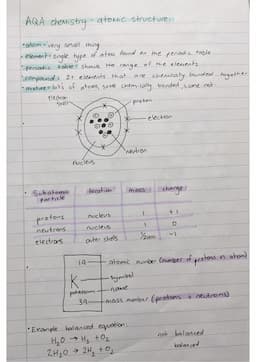 AQA chemistry - atomic structure:
• atom - very small thing
• element - single type of atom found on the periodic table
• periodic table - shows the range of the elements
• compound - 2+ elements that are chemically bonded together
• mixture - lots of atoms, some chemically bonded, some not
electron shell
proton
electron
neutron
nucleus
Subatomic particle location mass charge
protons nucleus 1 +1
neutrons nucleus 1 0
electrons outer shells 1/2000 -1
19 — atomic number (number of protons in atom)
K — symbol
potassium — name
39 — mass number (protons + neutrons)
• Example balanced equation:
H₂O → H₂ + O₂ not balanced
2H₂O → 2H₂ + O₂ balanced